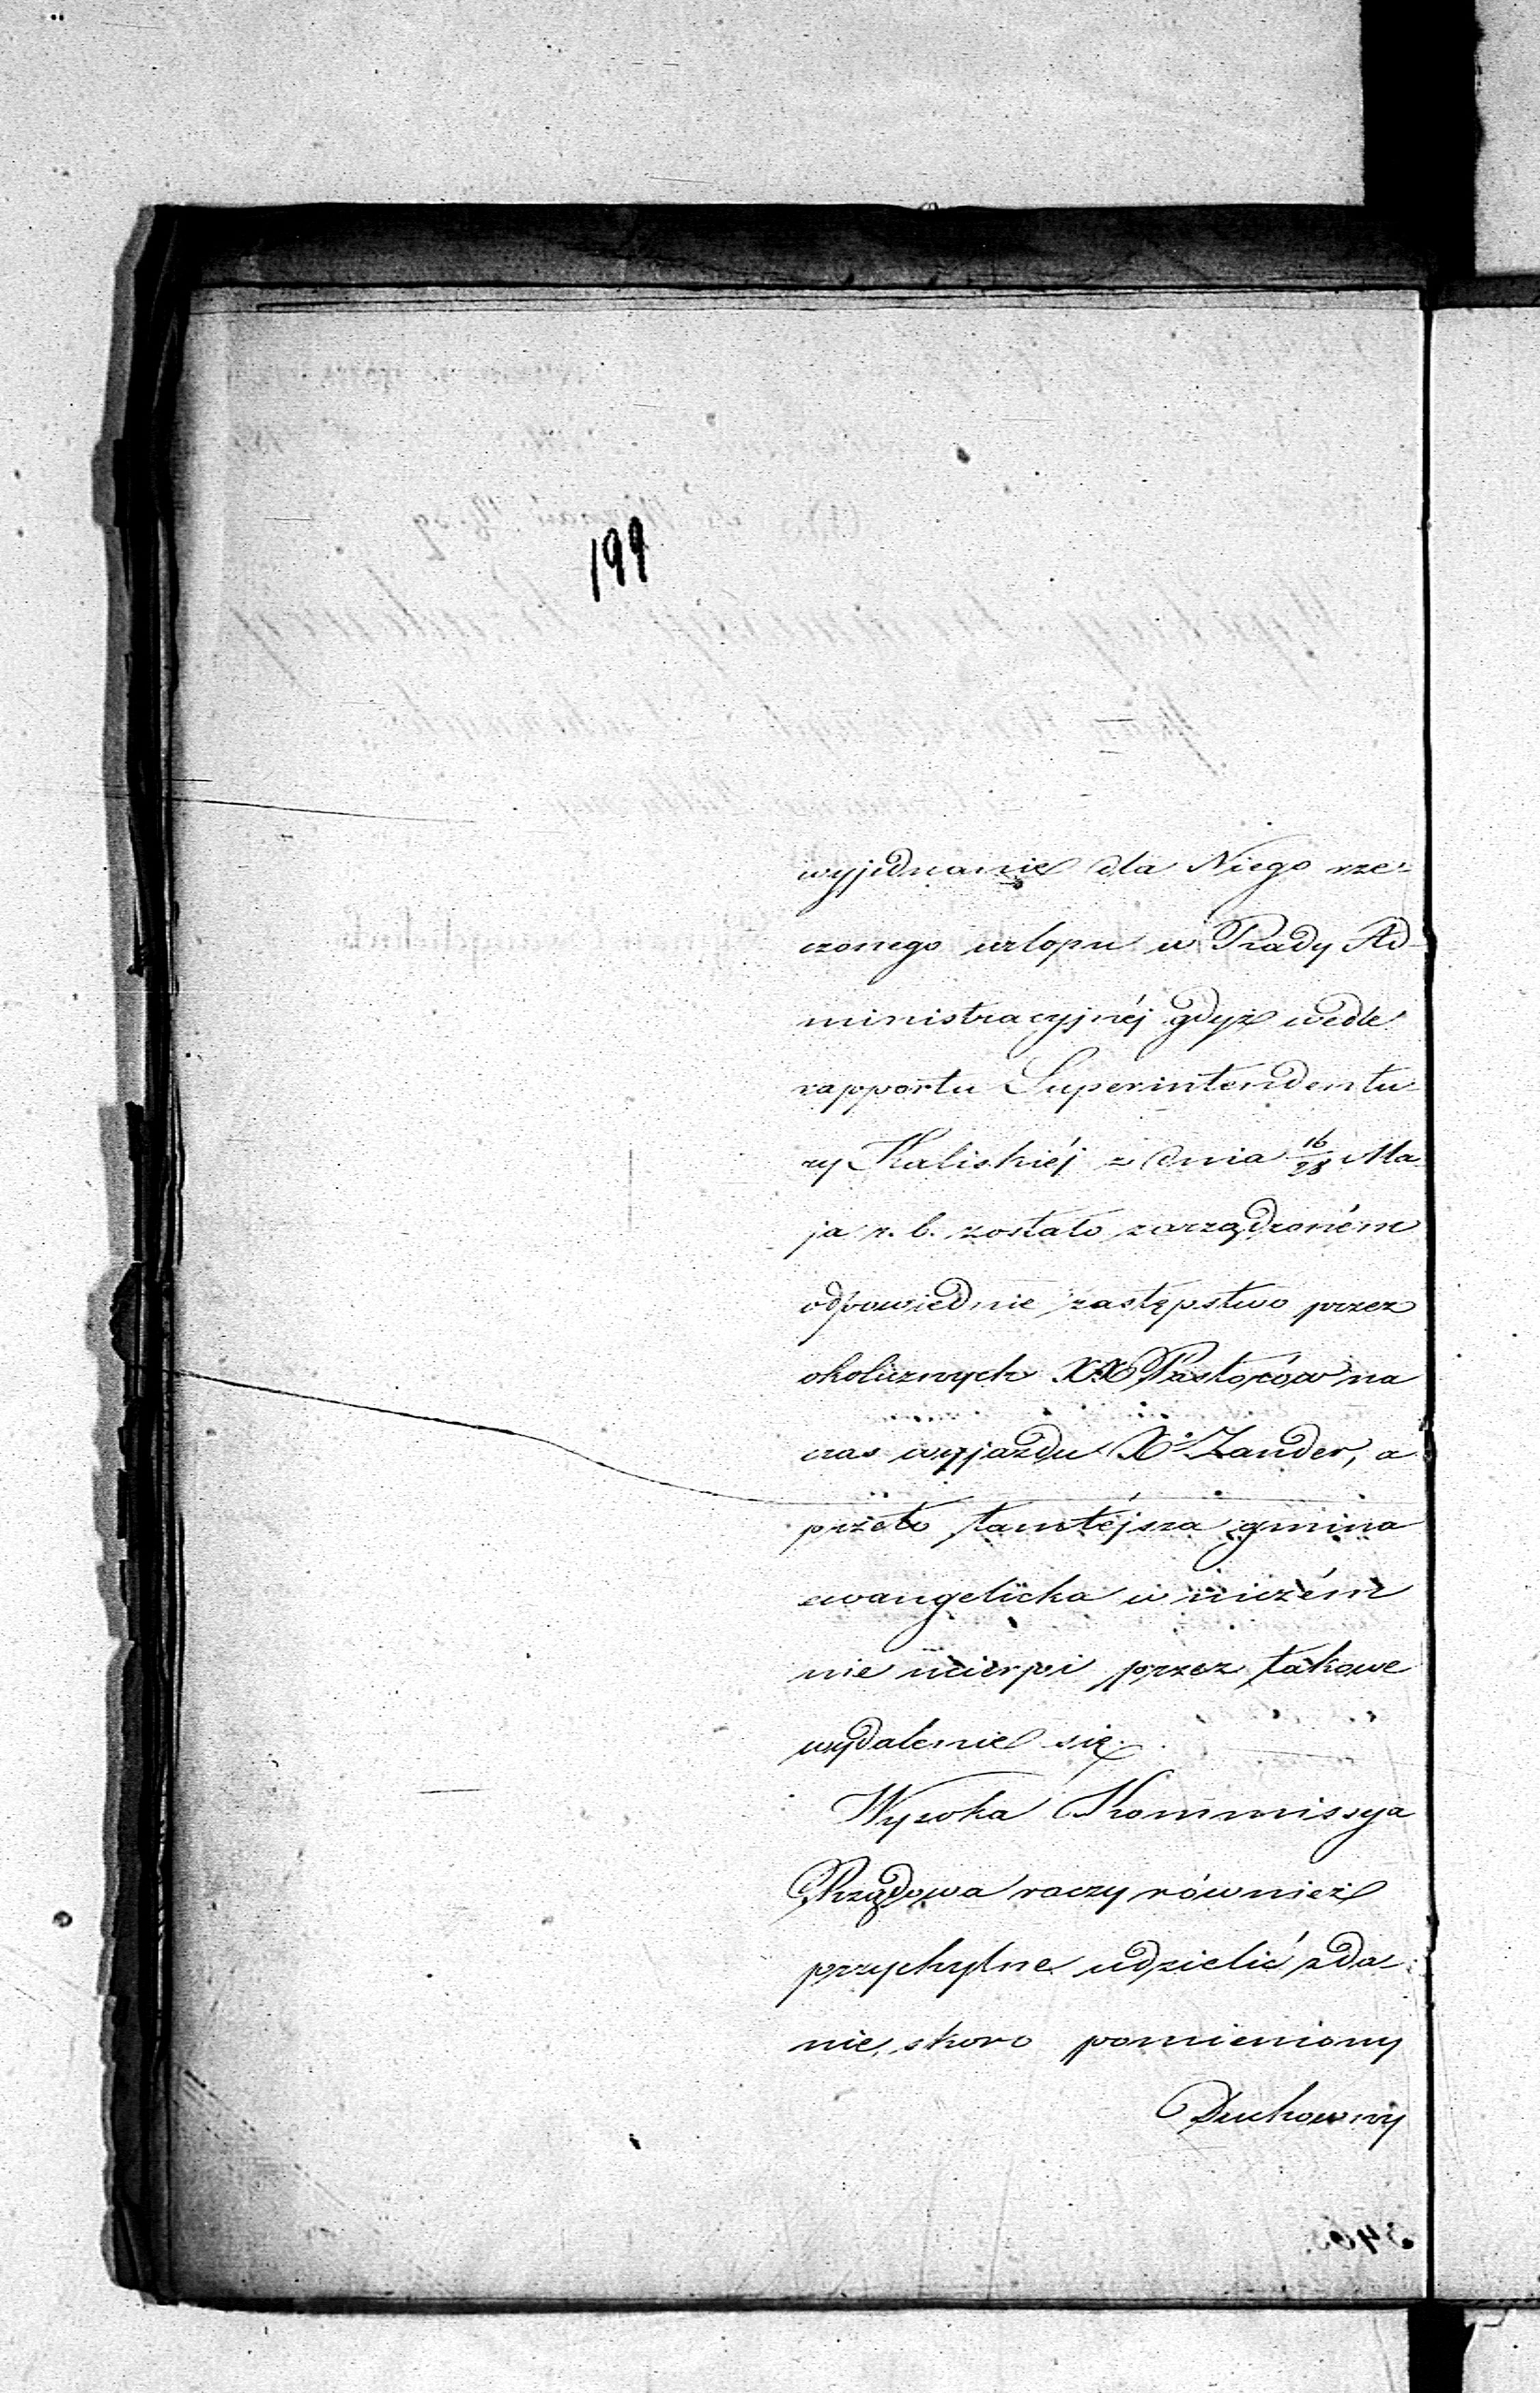 199
wyjednanie dla Niego rze-
czonego urlopu u Rady Ad-
ministracyjnéj gdyż wedle
rapportu Superintendentu-
ry Kaliskiéj z dnia 16/28 Ma-
ja r. b. zostało zarządzoném
odpowiednie zastępstwo przez
okolicznych XX Pastorów na
czas wyjazdu Xa Zander, a
przeto tamtéjsza gmina
ewangelicka w niczém
nie ucierpi przez takowe
wydalenie się.
Wysoka Kommissya
Rządowa raczy również
przychylne udzielić zda-
nie, skoro pomieniony
Duchowny